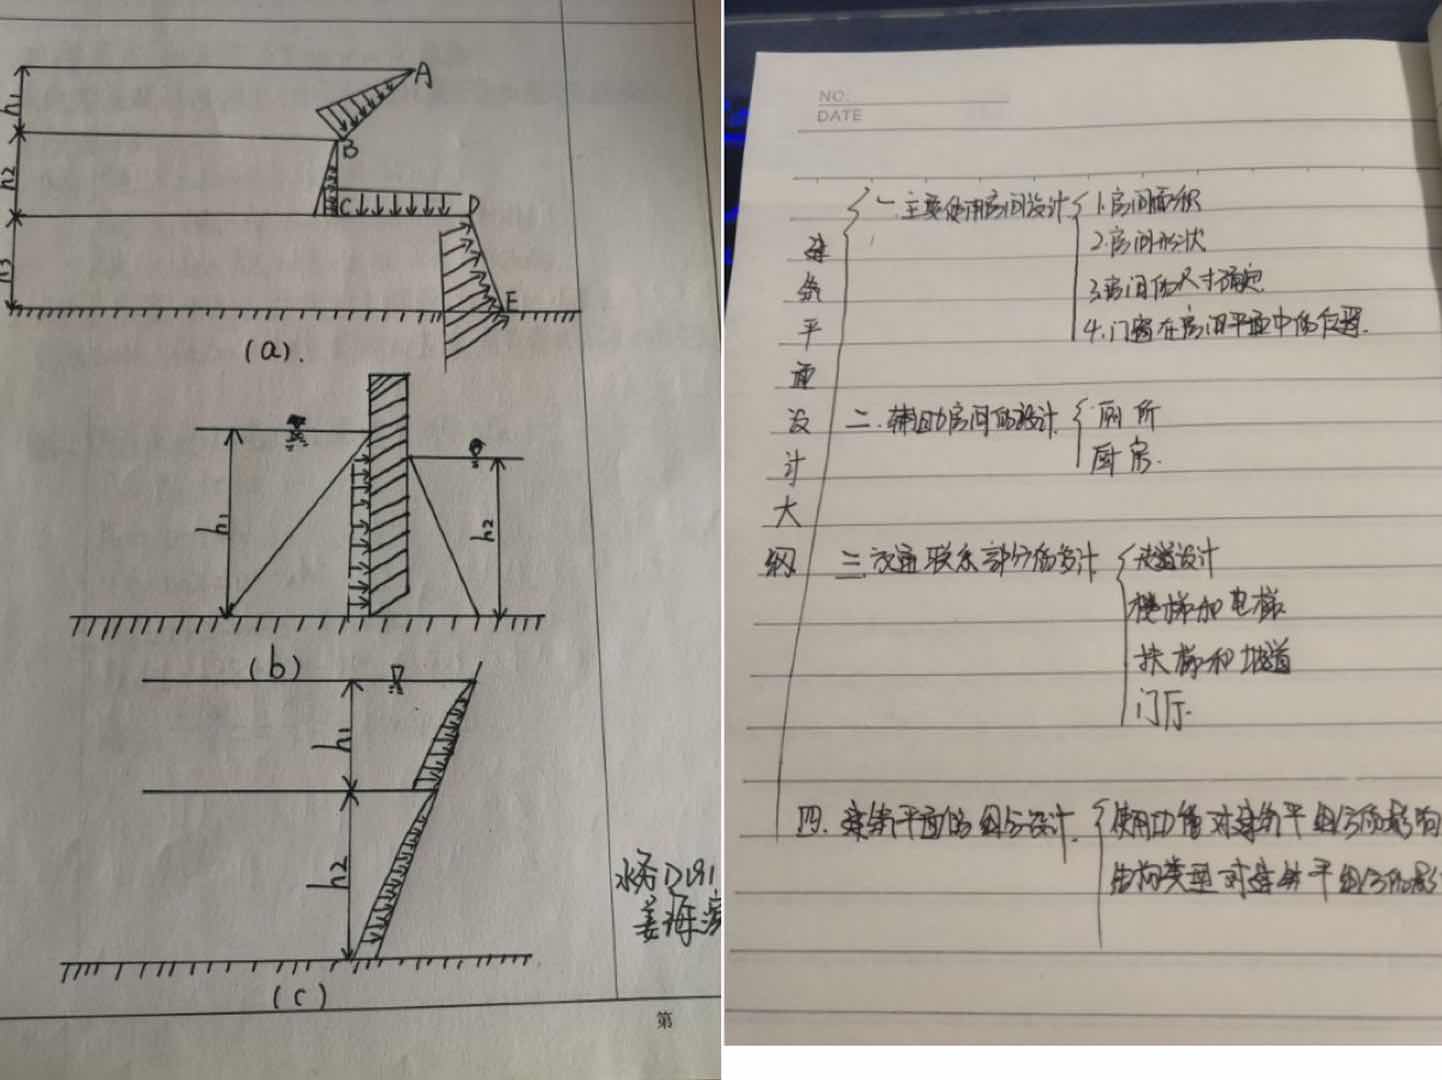 A
h1
B
h2
C
D
h3
E
(a).
h1
h2
(b)
h1
h2
(c)
水务D191
姜海
第
NO.
DATE
建筑平面设计大纲
一.主要使用房间设计
1.房间面积
2.房间形状
3.房间的尺寸确定
4.门窗在房间平面中的位置.
二.辅助房间的设计.
厕所
厨房.
三.交通联系部分的设计
走道设计
楼梯和电梯
扶梯和坡道
门厅.
四.建筑平面的组合设计.
使用功能对建筑平组合的影响
结构类型对建筑平组合的影